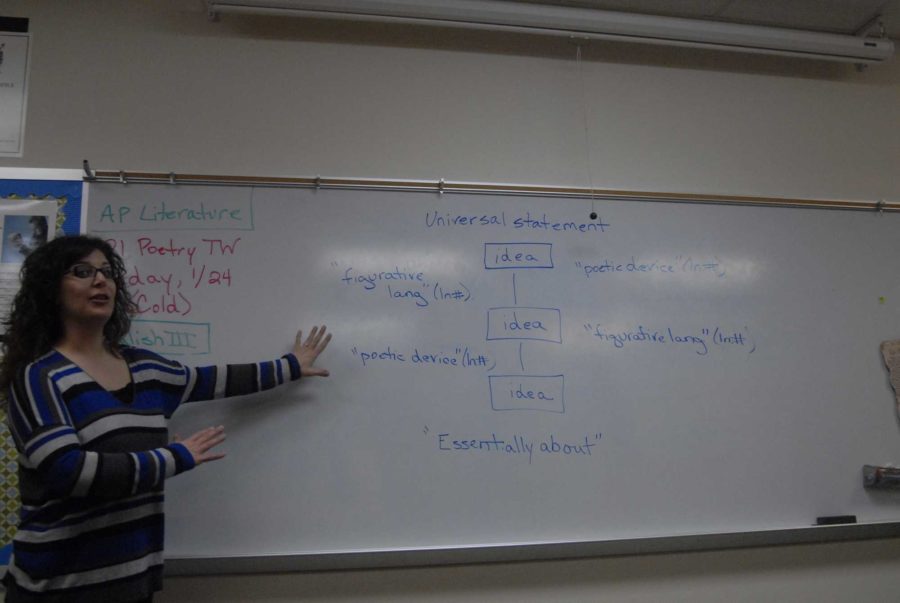 AP Literature
Poetry TW
day, 1/24
Cold)
lish III
Universal statement
idea
"figurative
lang" (ln#).
"poetic device" (ln#)
idea
"figurative lang" (ln#)
"poetic device" (ln#
idea
"Essentially about"